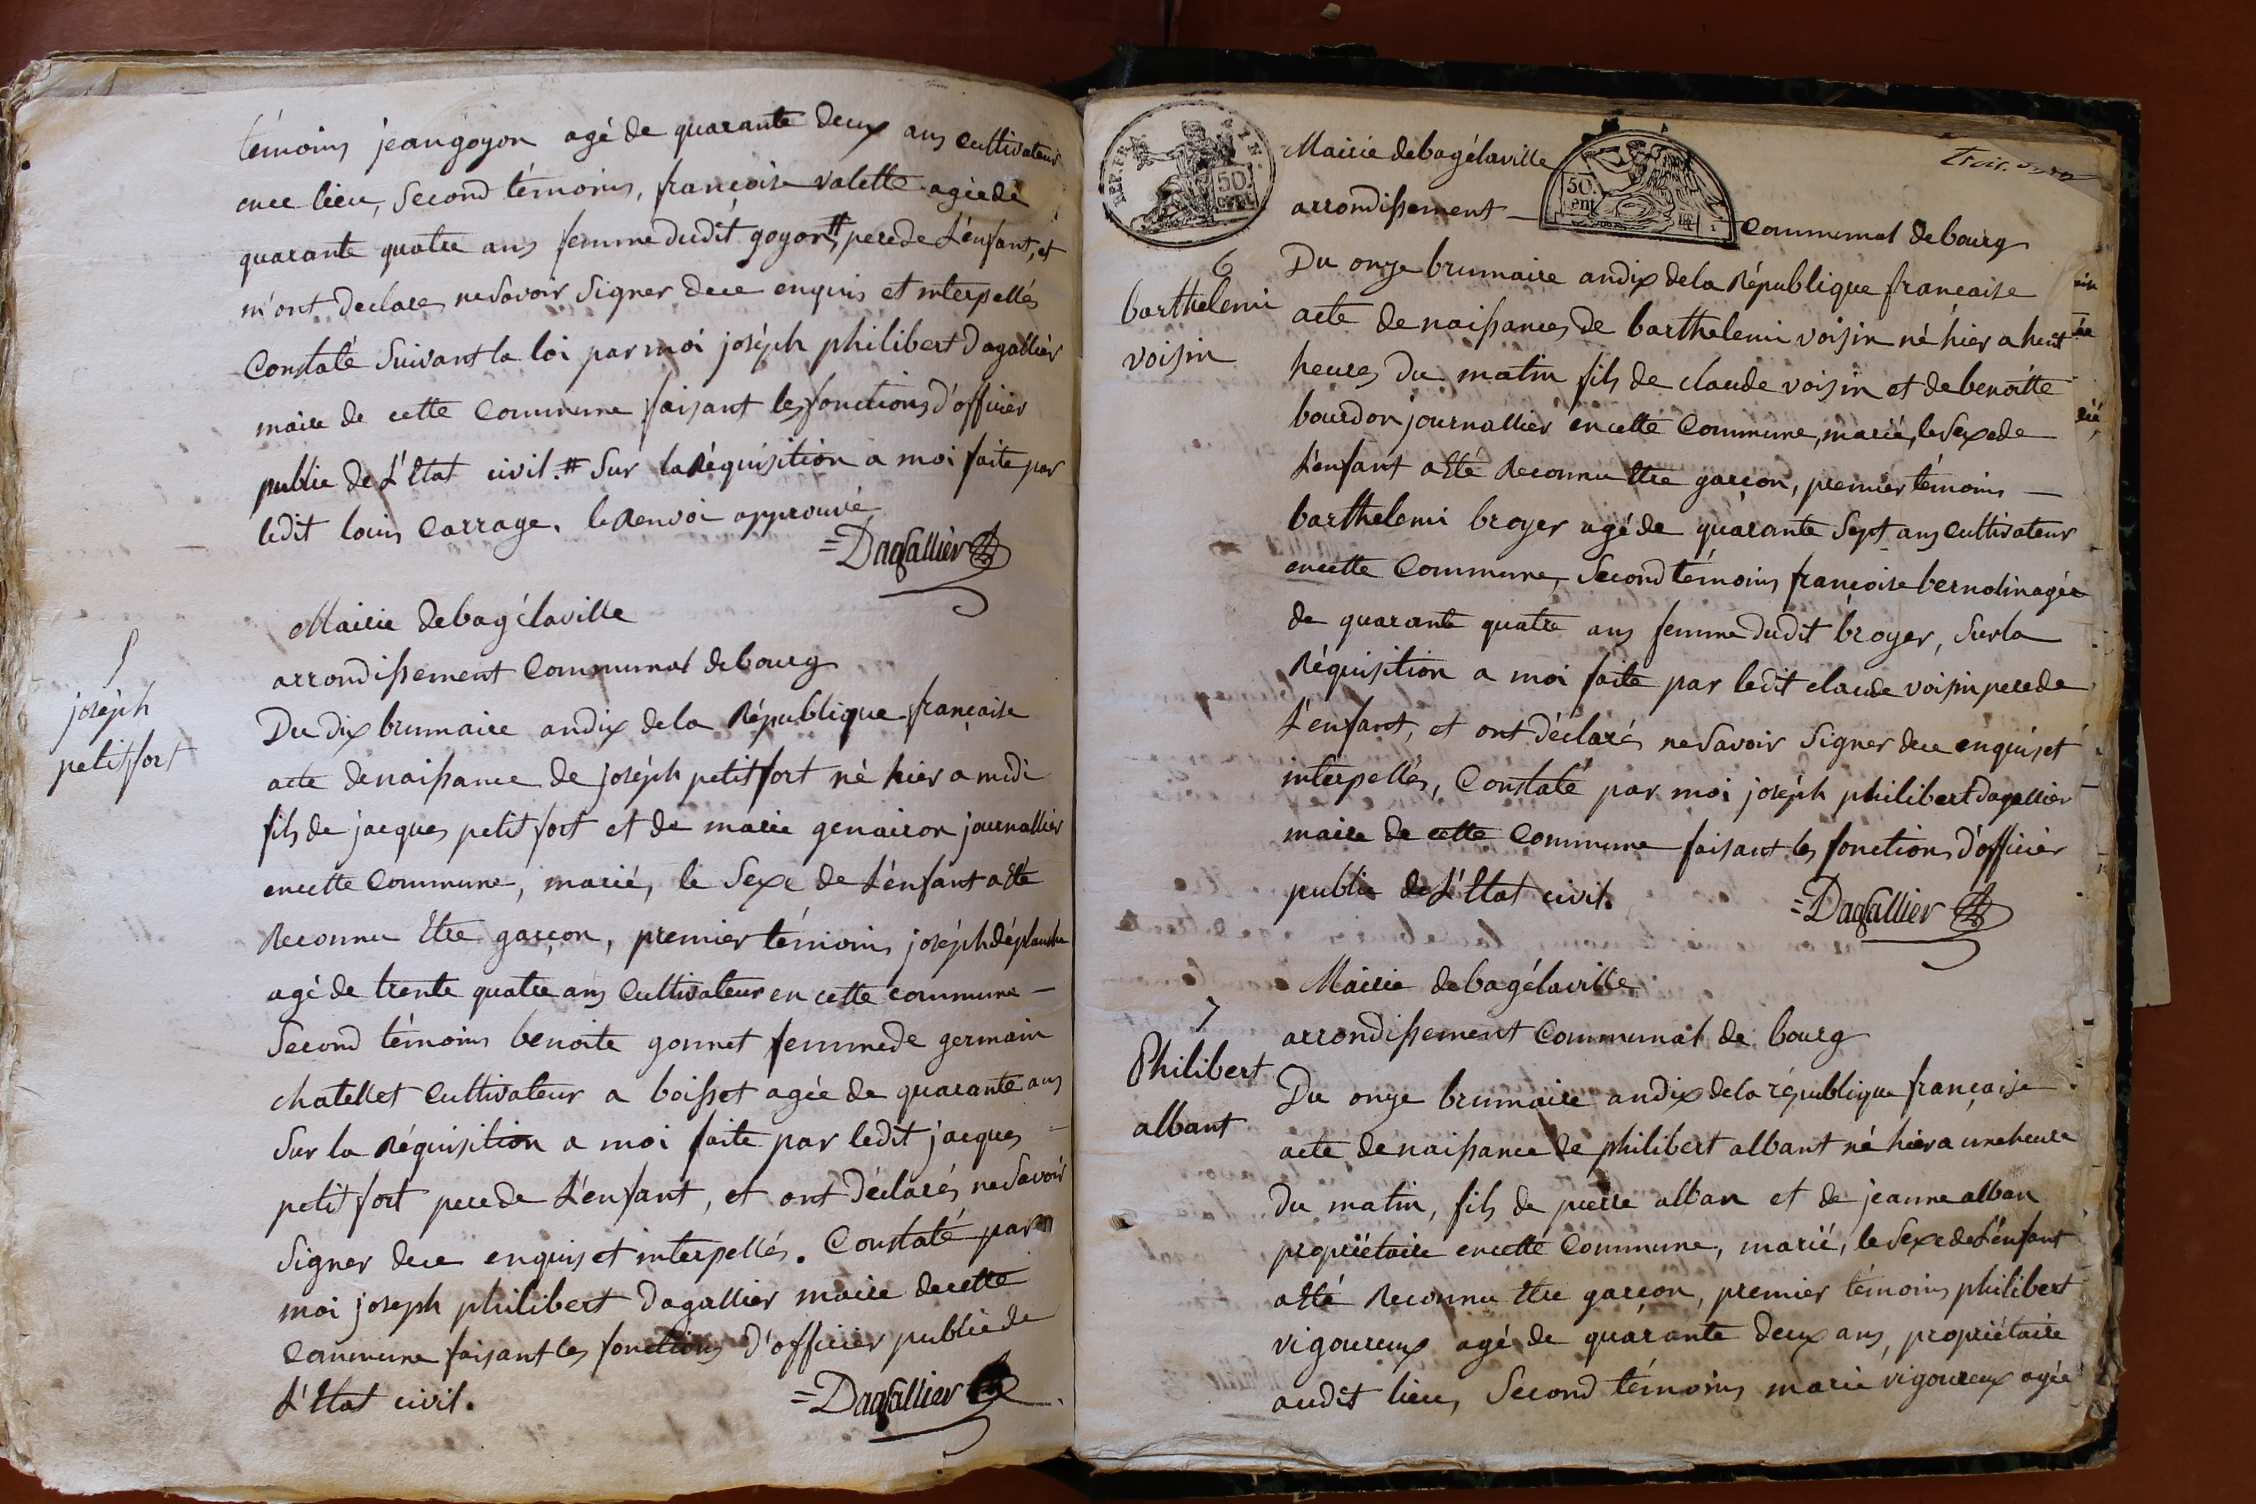 témoins jean goyon agé de quarante deux ans cultivateur
en ce lieu, Second témoins, francoise valette agée de
quarante quatre ans femme dudit goyon # pere de L'enfant, et
m'ont declarés ne Savoir Signer de ce enquis et interpellés
Constaté Suivant la loi par moi joséph philibert Dagallier
maire de cette Commune faisant les fonctions d'officier
public de L'Etat civil. # Sur la Réquisition a moi faite par
ledit louis Carrage. le Renvoi approuvé
=Dagallier
5
joséph
petitfort
Mairie de bagélaville
arrondissement Communal de bourg
Du dix brumaire an dix de la République francaise
acte de naissance de joséph petitfort né hier a midi
fils de jacques petit fort et de marie genairon journallier
en cette Commune, marié, le Sexe de L'enfant a Eté
Reconnu Etre garçon, premier témoins joséph déplanche
agé de trente quatre ans Cultivateur en cette commune —
Second témoins benoite gonnet femme de germain
chatellet Cultivateur a boisset agée de quarante ans
Sur la Réquisition a moi faite par ledit jacques
petit fort pere de L'enfant, et ont déclarés ne Savoir
Signer de ce enquis et interpellés. Constaté par
moi joseph philibert Dagallier maire de cette
Commune faisant les fonctions d'officier public de
L'Etat civil.
=Dagallier
REP. FRA.
50
CENT
Mairie de bagélaville
50.
cent
arrondissement — Communal de bourg
6
barthelemi
voisin
Du onze brumaire an dix de la République francaise
acte de naissances de barthelemi voisin né hier a huit
heures du matin fils de claude voisin et de benoitte
bourdon journallier en cette Commune, marié, le Sexe de
L'enfant a Eté Reconnu Etre garçon, premier témoins —
barthelemi broyer agé de quarante Sept ans Cultivateur
en cette Commune, Second témoins francoise bernolin agée
de quarante quatre ans femme dudit broyer, Sur la
Réquisition a moi faite par ledit claude voisin pere de
L'enfant, et ont déclarés ne Savoir Signer de ce enquis et
interpellés, Constaté par moi joséph philibert Dagallier
maire de cette Commune faisant les fonctions d'officier
public de L'Etat civil.
=Dagallier
7
Philibert
albant
Mairie de bagélaville
arrondissement Communal de bourg
Du onze brumaire an dix de la république française
acte de naissance de philibert albant né hier a une heure
du matin, fils de pierre alban et de jeanne alban
propriétaire en cette Commune, marié, le Sexe de L'enfant
a Eté Reconnu Etre garçon, premier témoins philibert
vigoureux agé de quarante deux ans, propriétaire
audit lieu, Second témoins marie vigoureux agée